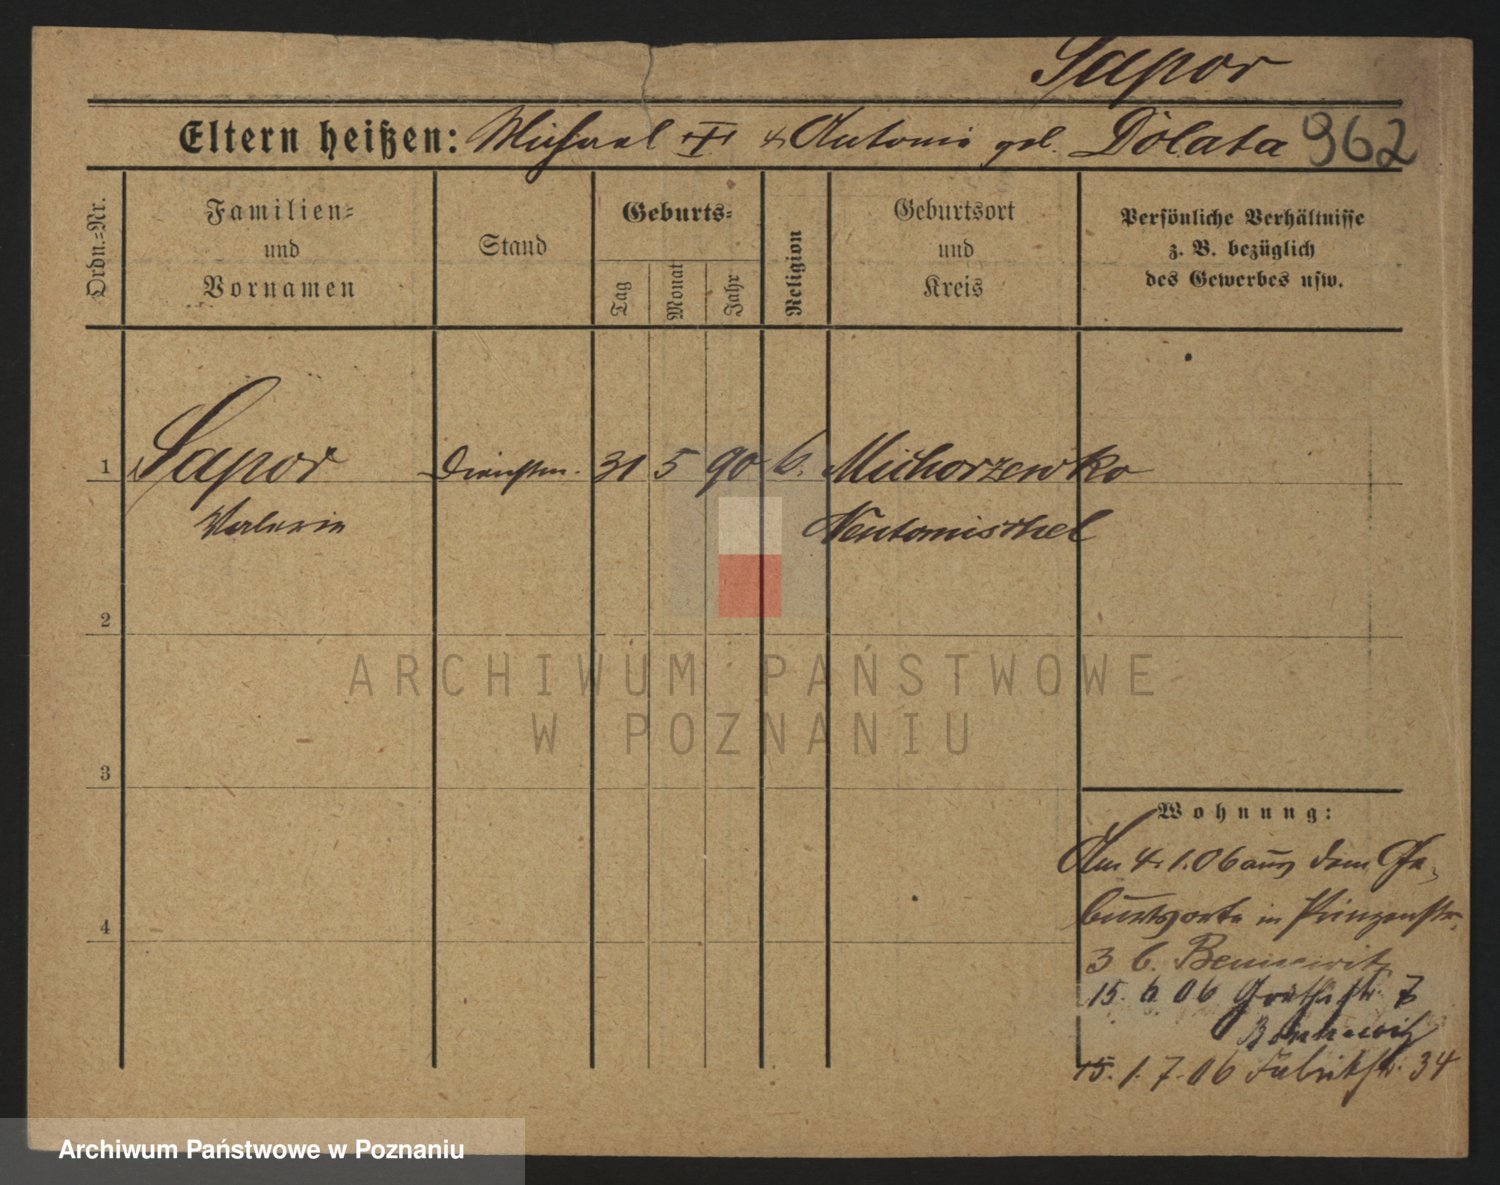 Sapor
Eltern heißen: Michael & Antonie geb. Dolata 962
Ordn.-Nr.
Familien-
und
Vornamen
Stand
Geburts-
Tag
Monat
Jahr
Religion
Geburtsort
und
Kreis
Persönliche Verhältnisse
z. B. bezüglich
des Gewerbes usw.
1 Sapor Dienstm. 31 5 90 Michorzewko
Valerie Neutomischel
2
3
4
Wohnung:
Am 4.1.06 aus dem Ge-
burtsorte in Prinzenstr.
3 b. Bennewitz
15. 6. 06 Goethestr. 7
Bennewitz
15. 1. 7. 06 Fabrikstr. 34
ARCHIWUM PAŃSTWOWE
W POZNANIU
Archiwum Państwowe w Poznaniu